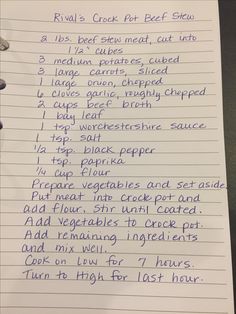 Rival's Crock Pot Beef Stew
2 lbs. beef stew meat, cut into
1 1/2" cubes
3 medium potatoes, cubed
3 large carrots, sliced
1 large onion, chopped
6 cloves garlic, roughly chopped
2 cups beef broth
1 bay leaf
1 tsp worchestershire sauce
1 tsp. salt
1/2 tsp. black pepper
1 tsp. paprika
1/4 cup flour
Prepare vegetables and set aside.
Put meat into crock pot and
add flour. Stir until coated.
Add vegetables to crock pot.
Add remaining ingredients
and mix well.
Cook on Low for 7 hours.
Turn to High for last hour.